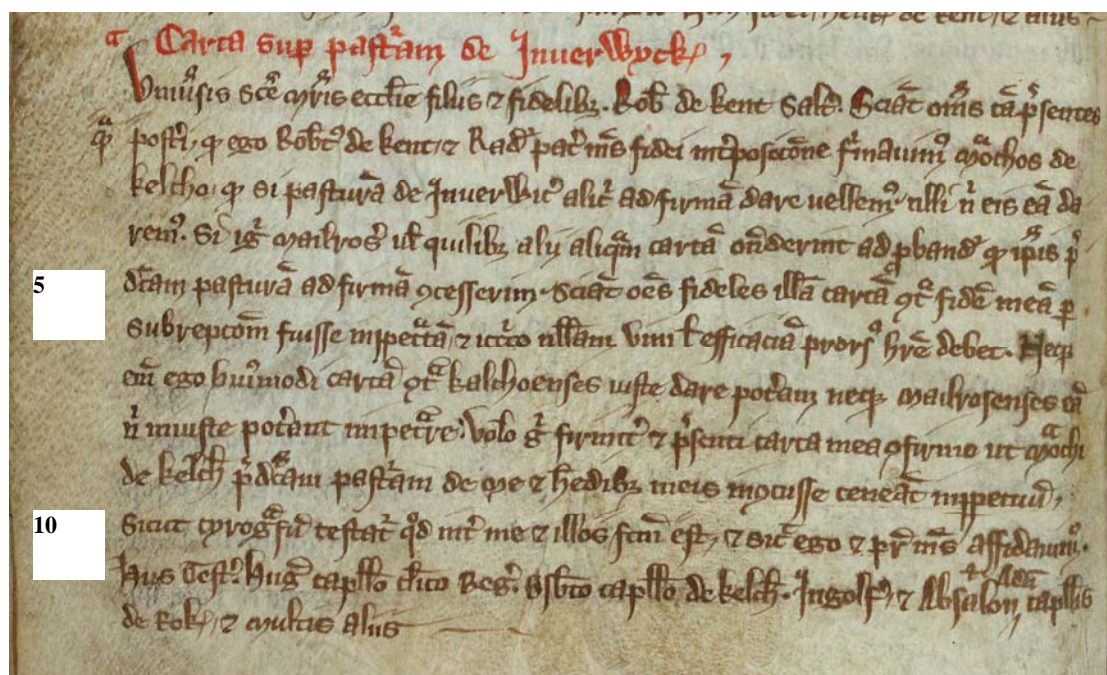 Carta sup pastᷓam de Inuerwyck
Vniuᷤsis scē mᷓris ecclie filiis ⁊ fidelibꝫ. Robͭ de kent salt̄. Sciāt om̄s tā pᷤsentes
qͣ post̾i, ꝙ ego Robtꝰ de kent, ⁊ Rad̾ pat̾ mꝰs fidei int̾posicōne f̾mauimꝰ mᷓochos de
kelcho, ꝙ si pasturā de Inuerwic̾ alic̾ ad firmā dare uellemꝰ, nlli n̾ eis eā da
remꝰ. Si igͬ mailros̾ ul̾ quilibꝫ alij aliqᷓm cartā on̄derint ad ꝓband̾ ꝙ ip̄is p̾
5 dcāam pasturā ad firmā ꝯcesserim, Sciāt oēs fideles illā cartā ꝯtᷓ fidē meā ꝑ
subrepcōm fuisse inpetᷓtā, ⁊ iccͦco nllam uim ł efficaciā prorsꝰ hr̄e debet. Neqꝫ
em̄ ego huiꝰmodi cartā ꝯtᷓ kalchoenses iuste dare pot̾am neqꝫ mailrosenses eā
n̾ iniuste pot̾ant inpetᷓre. Volo g̾ firmit̾ ⁊ pᷤsenti carta mea ꝯfirmo ut mᷓochi
de kelch̾ p̾dcām pastᷓam de me ⁊ h̾edibꝫ meis inꝯcusse teneāt inppetuū,
10 Sicut cyrogᷓfū testat̾ qͦd int̾ me ⁊ illos fcm̄ est, ⁊ sic̾ ego ⁊ pr̄ mꝰs affidauimꝰ.
Hiis Testꝰ. Hug̾ capllo cl̾ico Reg̾. Osbto capllo de kelch̾. Ingolf̾, ⁊ Absalon ⁊ Adā capllis
de Rok, ⁊ multis aliis